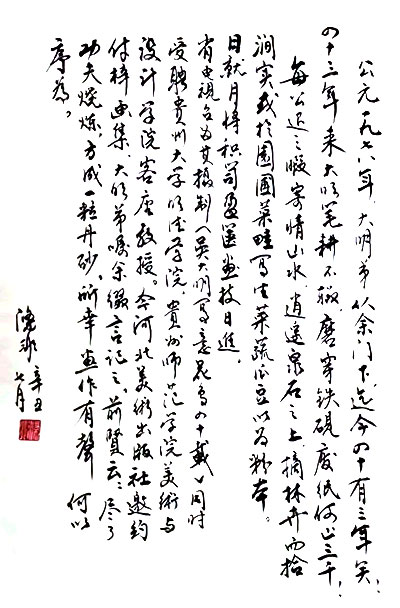 公元一九七八年,大明弟从余门下,迄今四十有三年矣!
四十三年来大明笔耕不辍,磨穿铁砚废纸何止三千!
每公退之暇寄情山水,逍遥泉石之上,摘林卉而拾
涧实或于园圃菜畦写生菜蔬瓜豆以为粉本。
日就月将积笥盈箧画技日进。
有电视台为其摄制《吴大明写意花鸟四十载》同时
受聘贵州大学明德学院、贵州师范学院美术与
设计学院客座教授,今河北美术出版社邀约
付梓画集,大明弟嘱余缀言记之,前贤云:尽了
功夫烧炼,方成一粒丹砂,所幸画作有声 何以
序为。
辛丑
七月